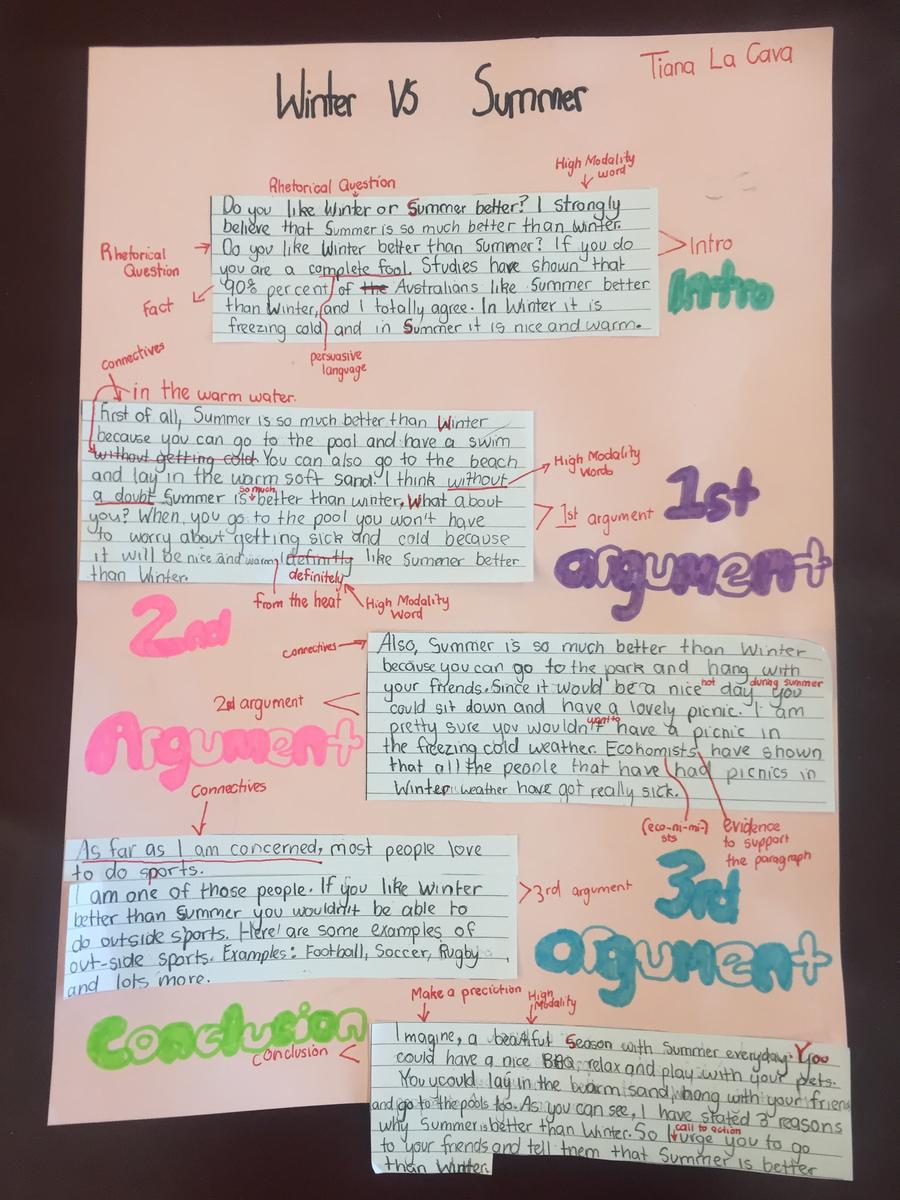 Tiana La Cava
Winter VS Summer
High Modality
word
Rhetorical Question
Do you like Winter or Summer better? I strongly
believe that Summer is so much better than winter.
Do you like Winter better than Summer? If you do
you are a complete fool. Studies have shown that
90% percent of the Australians like Summer better
than Winter, and I totally agree. In Winter it is
freezing cold and in Summer it is nice and warm.
Rhetorical
Question
Fact
Intro
Intro
persuasive
language
connectives
in the warm water.
First of all, Summer is so much better than Winter
because you can go to the pool and have a swim
without getting cold. You can also go to the beach
and lay in the warm soft sand. I think without
a doubt Summer is so much better than winter, What about
you? When you go to the pool you won't have
to worry about getting sick and cold because
it will be nice and warm, I definitly like Summer better
than Winter.
definitely
from the heat
High Modality
Word
High Modality
words
1st argument
1st
argument
2nd
Argument
connectives
2nd argument
Also, Summer is so much better than Winter
because you can go to the park and hang with
your friends. Since it would be a nice hot day during summer you
could sit down and have a lovely picnic. I am
pretty sure you wouldn't want to have a picnic in
the freezing cold weather. Economists have shown
that all the people that have had picnics in
Winter weather have got really sick.
(eco-ni-mi-)
sts
evidence
to support
the paragraph
Connectives
As far as I am concerned, most people love
to do sports.
I am one of those people. If you like Winter
better than Summer you wouldn't be able to
do outside sports. Here are some examples of
out-side sports. Examples: Football, Soccer, Rugby
and lots more.
3rd argument
3rd
agument
Conclusion
Conclusion
Make a preciction
High
Modality
Imagine, a beautiful Season with Summer everyday. You
could have a nice BBQ, relax and play with your pets.
You could lay in the warm sand, hang with your friend
and go to the pools too. As you can see, I have stated 3 reasons
why Summer is better than Winter. So I urge you to go
call to action
to your friends and tell them that Summer is better
than Winter.